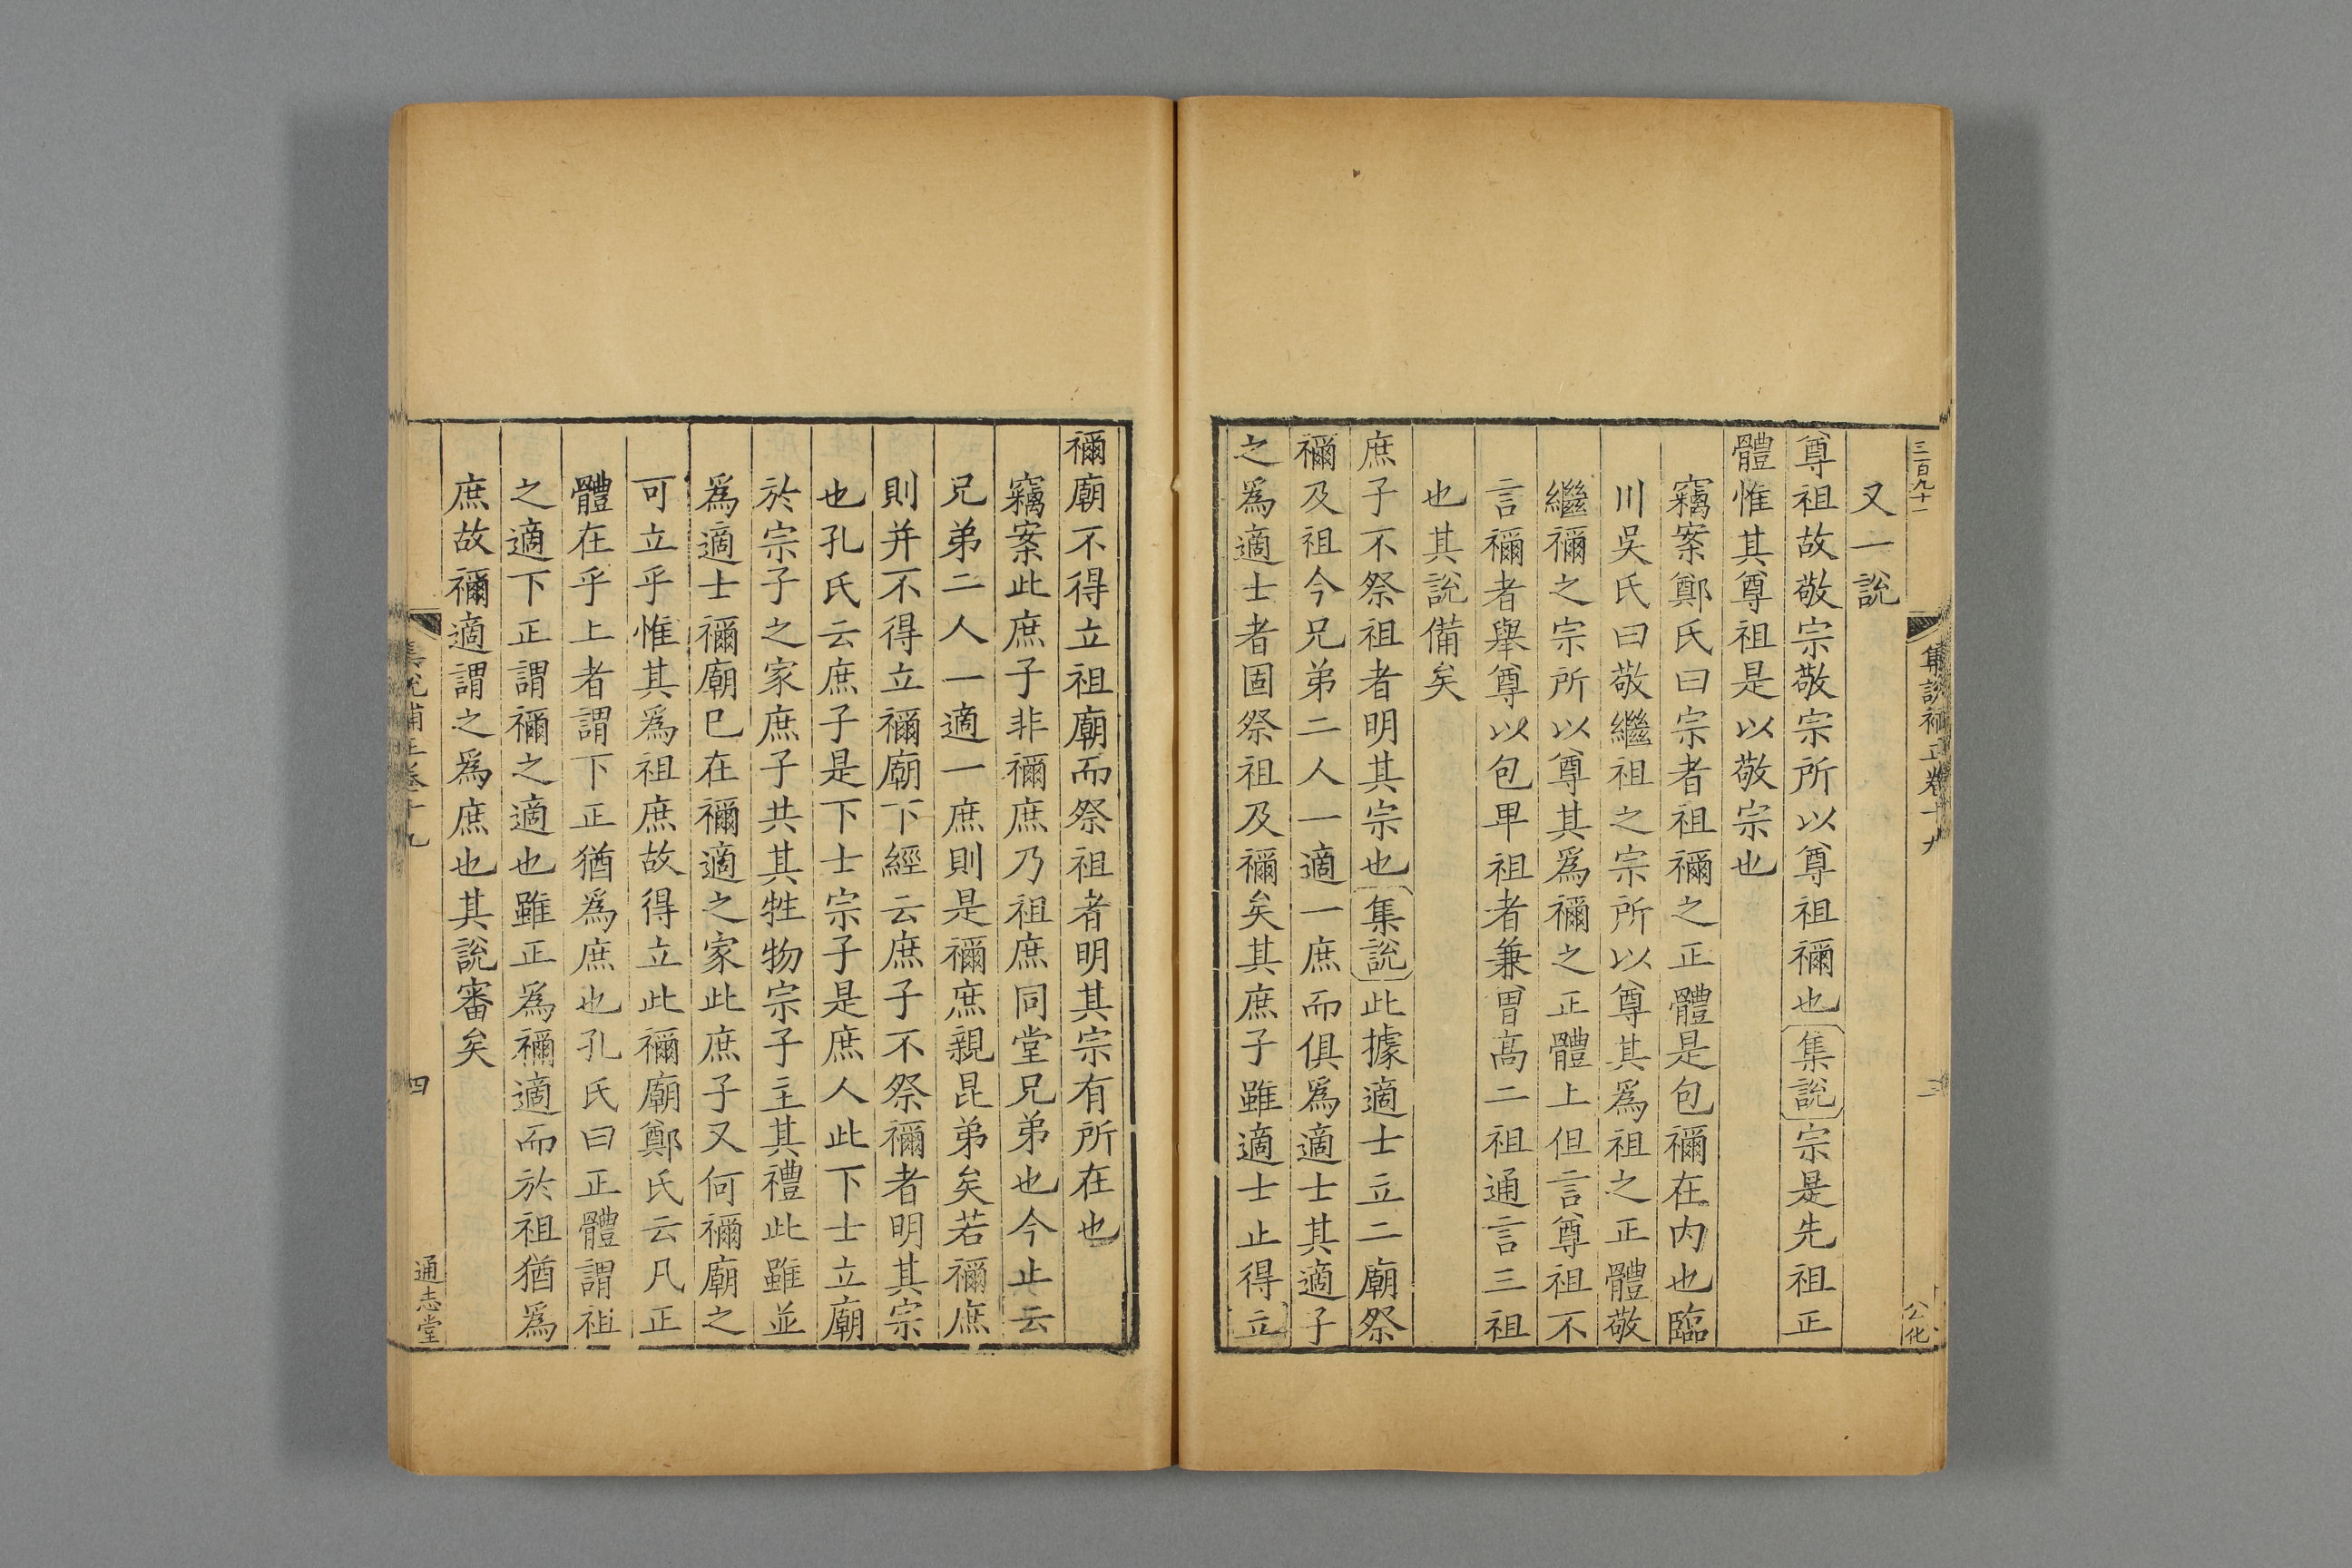 三百九十一
集說補正卷十九
三
公化
又一說
尊祖故敬宗敬宗所以尊祖禰也集說宗是先祖正
體惟其尊祖是以敬宗也
竊案鄭氏曰宗者祖禰之正體是包禰在内也臨
川吳氏曰敬繼祖之宗所以尊其爲祖之正體敬
繼禰之宗所以尊其爲禰之正體上但言尊祖不
言禰者舉尊以包卑祖者兼曾高二祖通言三祖
也其說備矣
庶子不祭祖者明其宗也集說此據適士立二廟祭
禰及祖今兄弟二人一適一庶而俱爲適士其適子
之爲適士者固祭祖及禰矣其庶子雖適士止得立
禰廟不得立祖廟而祭祖者明其宗有所在也
竊案此庶子非禰庶乃祖庶同堂兄弟也今止云
兄弟二人一適一庶則是禰庶親昆弟矣若禰庶
則并不得立禰廟下經云庶子不祭禰者明其宗
也孔氏云庶子是下士宗子是庶人此下士立廟
於宗子之家庶子共其牲物宗子主其禮此雖並
爲適士禰廟巳在禰適之家此庶子又何禰廟之
可立乎惟其爲祖庶故得立此禰廟鄭氏云凡正
體在乎上者謂下正猶爲庶也孔氏曰正體謂祖
之適下正謂禰之適也雖正爲禰適而於祖猶爲
庶故禰適謂之爲庶也其說審矣
集說補正卷十九
四
通志堂